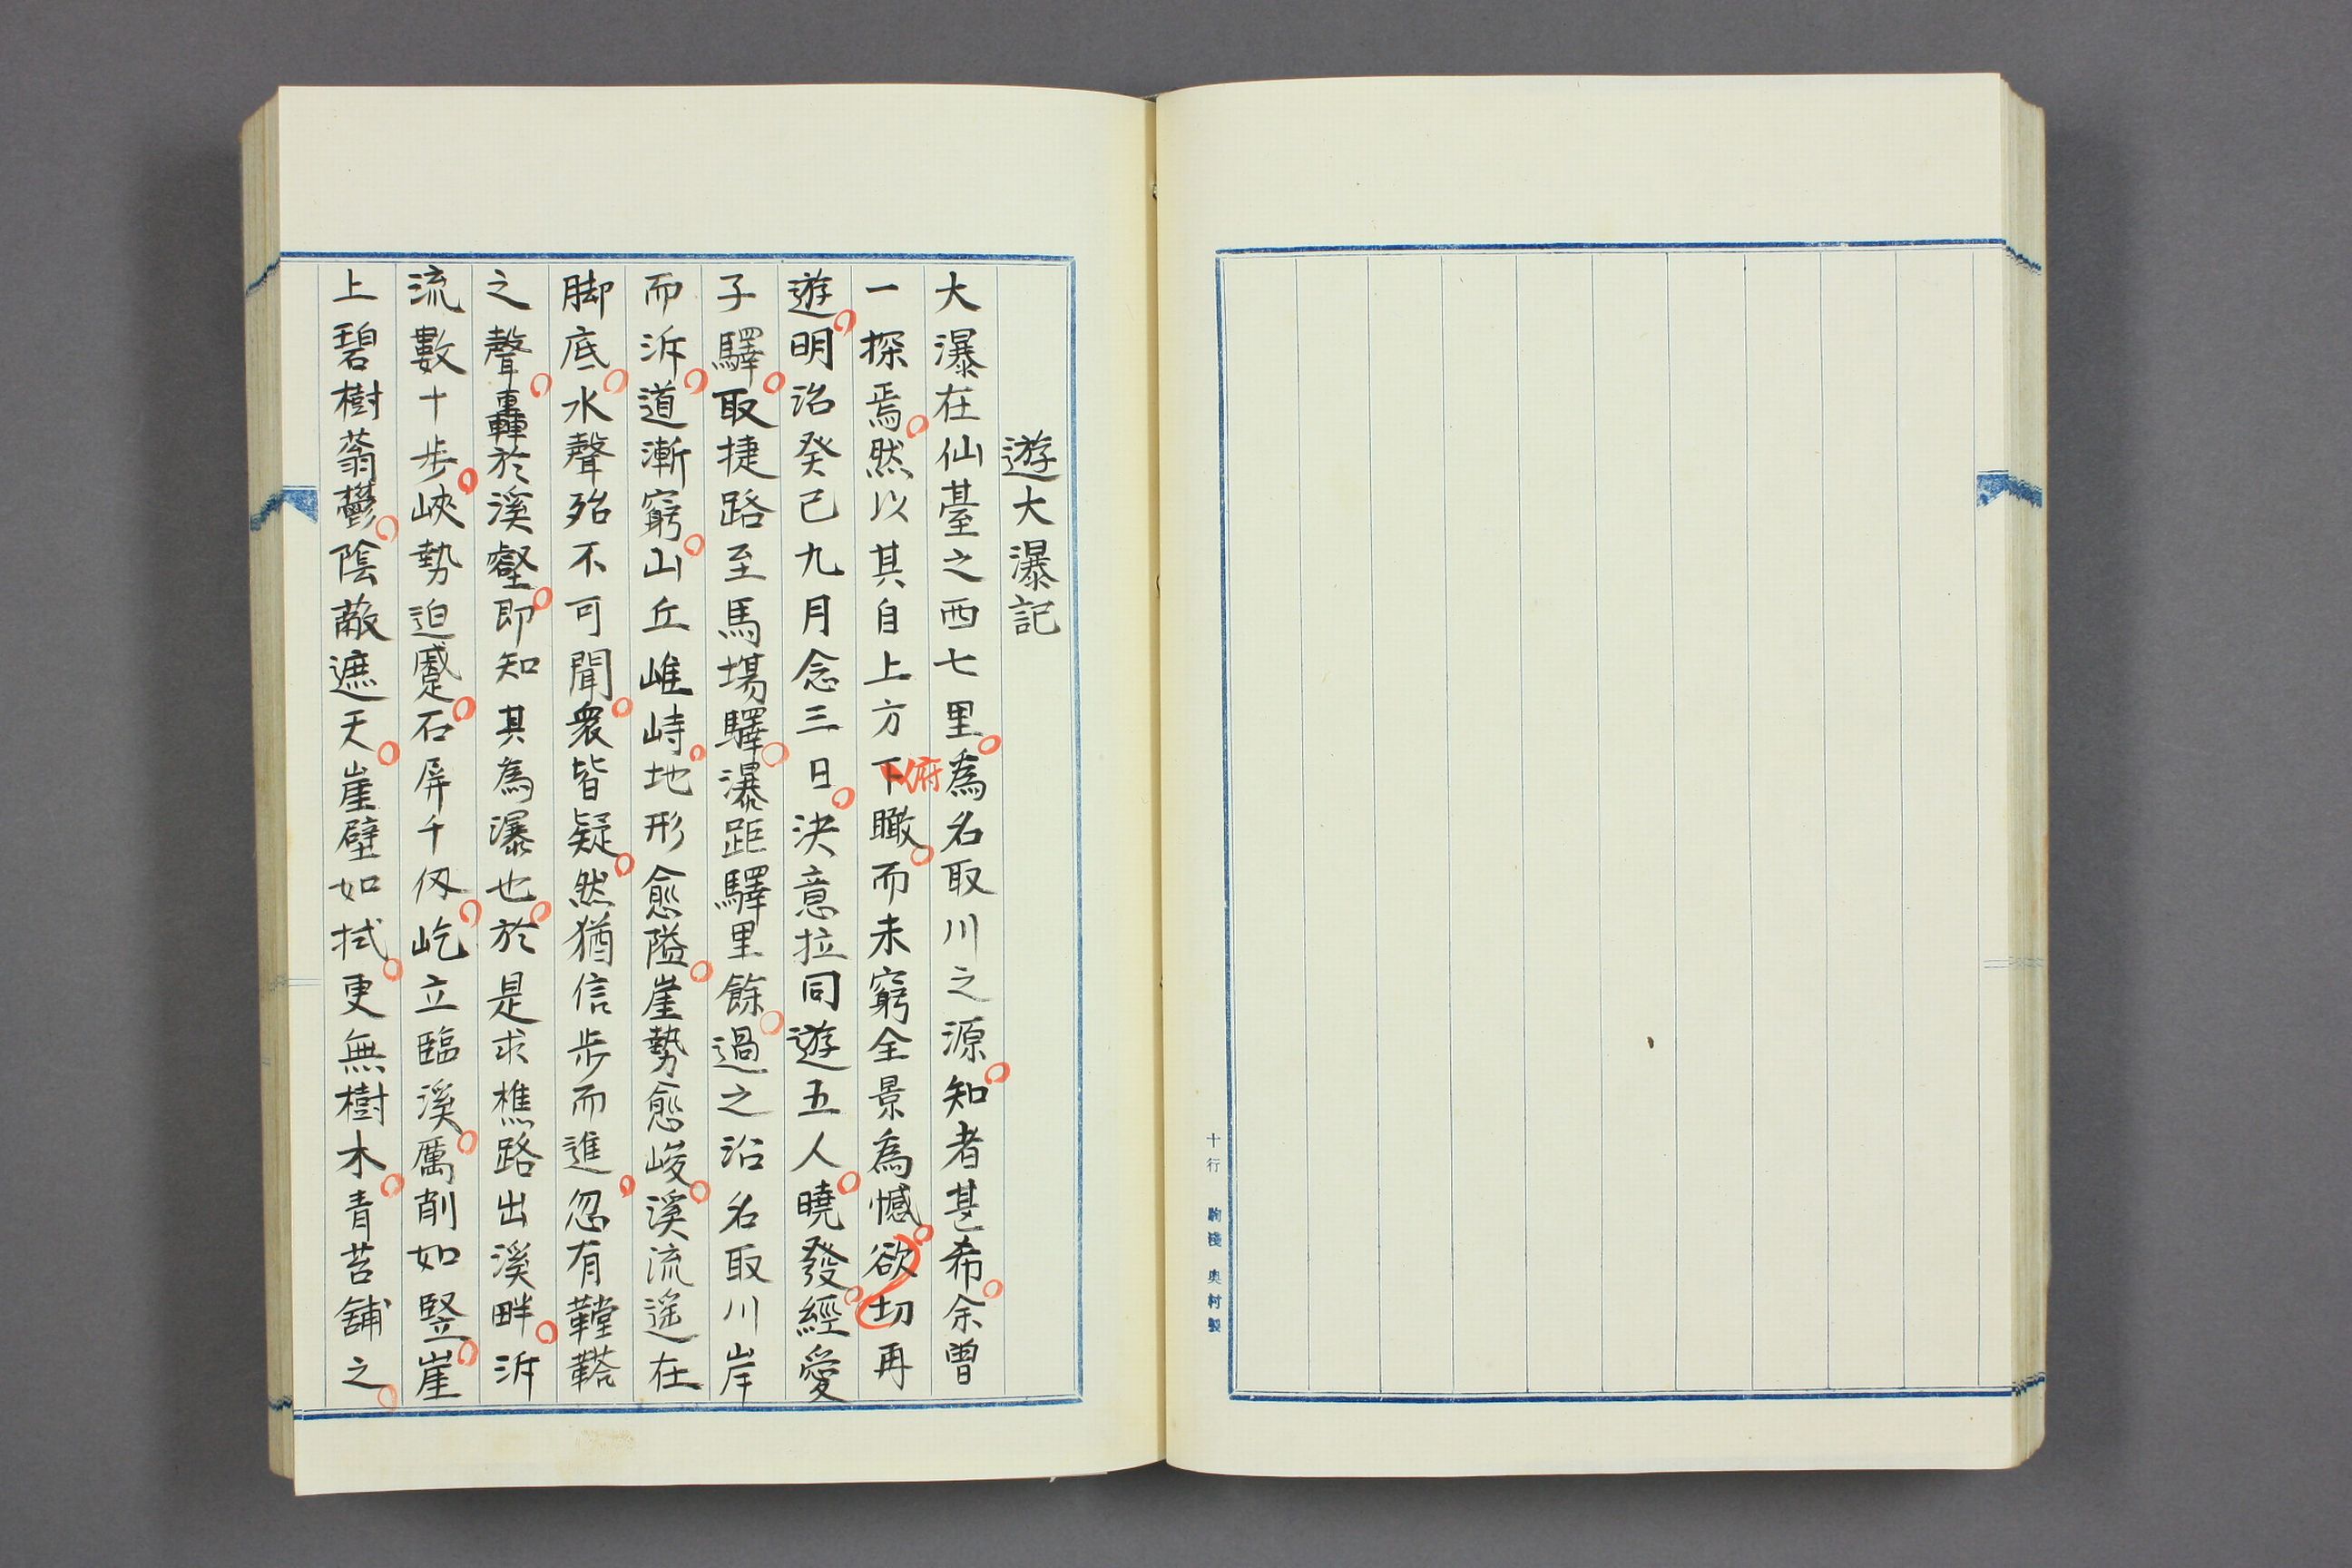 遊大瀑記
大瀑在仙臺之西七里。為名取川之源。知者甚希。余曽
一探焉。然以其自上方下俯瞰。而未窮全景為憾。欲切再
遊。明治癸己九月念三日。決意拉同遊五人。曉發。經愛
子驛。取捷路至馬場驛。瀑距驛里餘。過之沿名取川岸
而泝。道漸窮。山丘崕峙。地形愈隘。崖勢愈峻。溪流遥在
脚底。水聲殆不可聞。衆皆疑。然猶信步而進。忽有鞺鞳
之聲。轟於溪壑。即知其為瀑也。於是求樵路出溪畔。泝
流數十步。峽勢迫蹙。石屏千仭。屹立臨溪。厲削如竪。崖
上碧樹蓊鬱。陰蔽遮天。崖壁如拭。更無樹木。青苔舗之。
十行 駒棱 奥村製